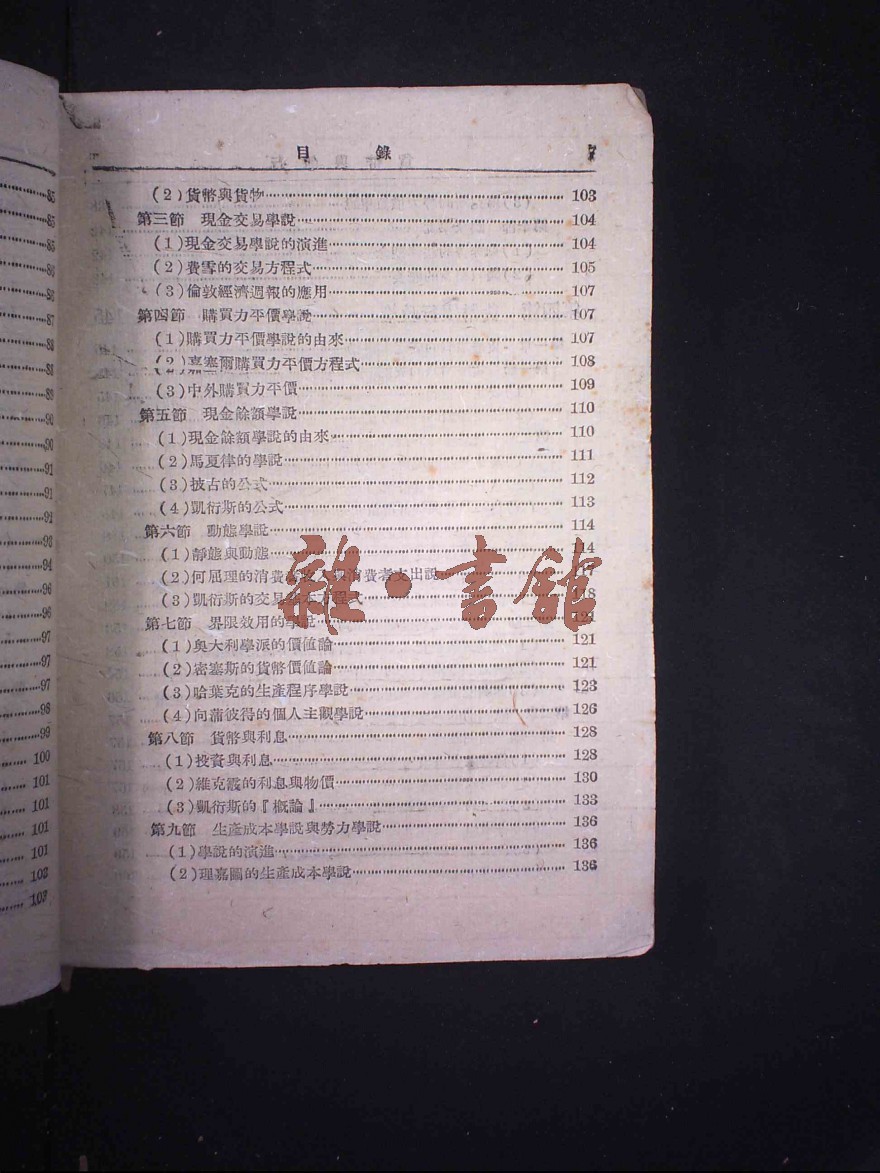 85
85
85
86
86
87
88
88
89
90
90
91
91
92
93
94
96
96
97
97
97
98
99
100
101
101
101
102
103
目 錄 7
(2)貨幣與貨物 103
第三節 現金交易學說 104
(1)現金交易學說的演進 104
(2)費雪的交易方程式 105
(3)倫敦經濟週報的應用 107
第四節 購買力平價學說 107
(1)購買力平價學說的由來 107
(2)嘉塞爾購買力平價方程式 108
(3)中外購買力平價 109
第五節 現金餘額學說 110
(1)現金餘額學說的由來 110
(2)馬夏律的學說 111
(3)披古的公式 112
(4)凱衍斯的公式 113
第六節 動態學說 114
(1)靜態與動態 114
(2)何屈理的消費者收入與消費者支出說 117
(3)凱衍斯的交易基本方程式 118
第七節 界限效用的學說 121
(1)奧大利學派的價值論 121
(2)密塞斯的貨幣價值論 121
(3)哈葉克的生產程序學說 123
(4)向蒲彼得的個人主觀學說 126
第八節 貨幣與利息 128
(1)投資與利息 128
(2)維克霞的利息與物價 130
(3)凱衍斯的『概論』 133
第九節 生產成本學說與勞力學說 136
(1)學說的演進 136
(2)理嘉圖的生產成本學說 136
雜·書館